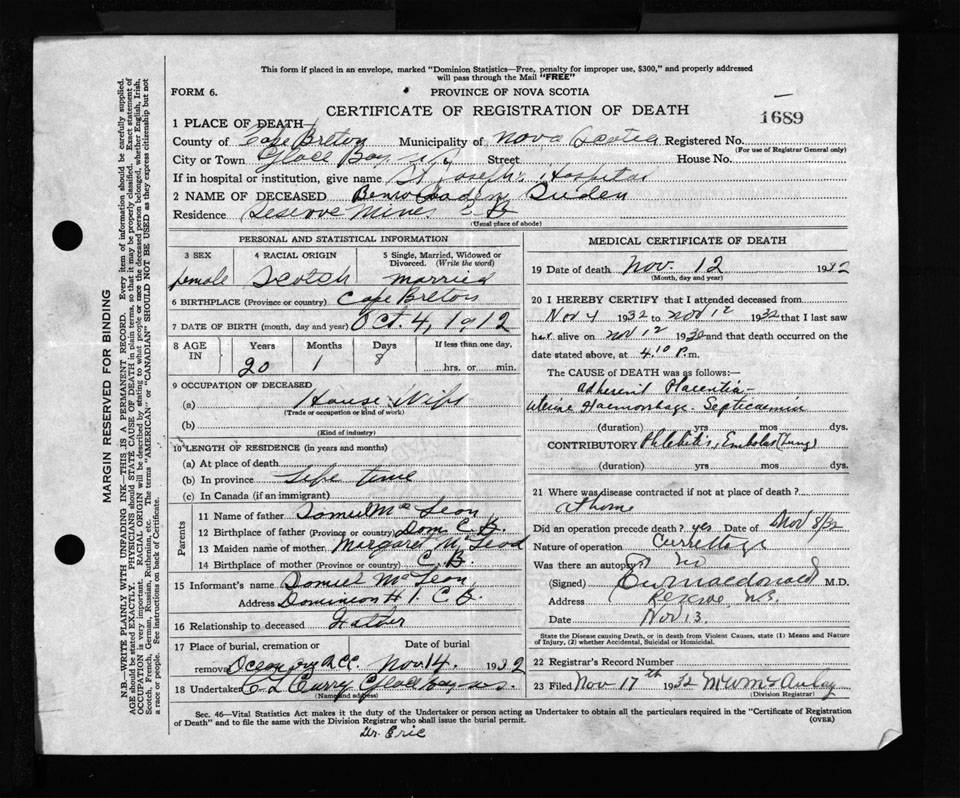 This form if placed in an envelope, marked "Dominion Statistics—Free, penalty for improper use, $300," and properly addressed
will pass through the Mail "FREE"
FORM 6. PROVINCE OF NOVA SCOTIA
CERTIFICATE OF REGISTRATION OF DEATH
1689
1 PLACE OF DEATH
County of Cape Breton Municipality of Nova Scotia Registered No.
(For use of Registrar General only)
City or Town Glace Bay Street House No.
If in hospital or institution, give name St Joseph's Hospital
2 NAME OF DECEASED
Residence Reserve Mines C B
(Usual place of abode)
PERSONAL AND STATISTICAL INFORMATION
3 SEX 4 RACIAL ORIGIN 5 Single, Married, Widowed or
Divorced. (Write the word)
female Scotch married
6 BIRTHPLACE (Province or country) Cape Breton
7 DATE OF BIRTH (month, day and year) Oct. 4, 1912
8 AGE IN Years Months Days If less than one day,
20 1 8 hrs. or min.
9 OCCUPATION OF DECEASED
(a) House Wife
(Trade or occupation or kind of work)
(b)
(Kind of industry)
10 LENGTH OF RESIDENCE (in years and months)
(a) At place of death
(b) In province Life time
(c) In Canada (if an immigrant)
Parents
11 Name of father
12 Birthplace of father (Province or country) Dom C. B.
13 Maiden name of mother Margaret
14 Birthplace of mother (Province or country) C. B.
15 Informant's name
Address Dominion C. B.
16 Relationship to deceased Father
17 Place of burial, cremation or Date of burial
removal Nov 14. 1932
18 Undertaker C L Curry Glace Bay N.S.
(Name and address)
MEDICAL CERTIFICATE OF DEATH
19 Date of death Nov. 12 1932
(Month, day and year)
20 I HEREBY CERTIFY that I attended deceased from
Nov 4 1932 to Nov 12 1932 that I last saw
her alive on Nov 12 1932 and that death occurred on the
date stated above, at 4.10 P.m.
The CAUSE of DEATH was as follows:—
Adherent Placentia
Uterine Haemorhage. Septicaemia
(duration) yrs mos dys.
CONTRIBUTORY Phlebitis, Embolas (Lung)
(duration) yrs mos dys.
21 Where was disease contracted if not at place of death?
at home
Did an operation precede death? yes Date of Nov 8/32
Nature of operation Currettage
Was there an autopsy? no
(Signed) Macdonald M.D.
Address Reserve, N.S.
Date Nov 13.
State the Disease causing Death, or in death from Violent Causes, state (1) Means and Nature
of Injury, (2) whether Accidental, Suicidal or Homicidal.
22 Registrar's Record Number
23 Filed Nov 17th 1932 M W McAulay
(Division Registrar)
Sec. 46—Vital Statistics Act makes it the duty of the Undertaker or person acting as Undertaker to obtain all the particulars required in the "Certificate of Registration
of Death" and to file the same with the Division Registrar who shall issue the burial permit. (OVER)
Dr. Eric
MARGIN RESERVED FOR BINDING
N.B.—WRITE PLAINLY WITH UNFADING INK—THIS IS A PERMANENT RECORD. Every item of information should be carefully supplied.
AGE should be stated EXACTLY. PHYSICIANS should STATE CAUSE OF DEATH in plain terms, so that it may be properly classified. Exact statement of
OCCUPATION is very important. RACIAL ORIGIN will be described by stating to what people or race the deceased person belonged, whether English, Irish,
Scotch, French, German, Russian, Ruthenian, etc. The terms "AMERICAN" or "CANADIAN" SHOULD NOT BE USED as they express citizenship but not
a race or people. See instructions on back of Certificate.